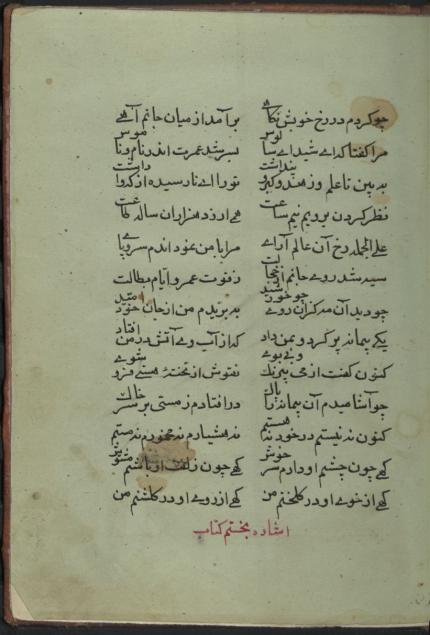 چو کردم در رخ خوبش نکاهے برآمد از میان جانم آهے
مرا کفتا که اے شیداے سالوس بسر شد عمرت اندر نام و ناموس
به بین تا علم و زهد و کبر و پنداشت تو را اے نارسیده از که وا داشت
نظر کردن برویم نیم ساعت همے ارزد هزاران ساله طاعت
علی الجمله رخ آن عالم آراے مرا با من نمود اندم سر و پاے
سیه شد روے جانم از خجالت ز فوت عمر و ایام بطالت
چو دید آن مه کزان روے چو خورشید ببریدم من از جان خود امید
یکے پیمانه پر کرد و بمن داد که از آب وے آتش در من افتاد
کنون کفت از می بیرنک و بے بوے نقوش از تخته هستے فرو شوے
چو آشامیدم آن پیمانه را پاک در افتادم ز مستی بر سر خاک
کنون نه نیستم در خود نه هستم نه هشیارم نه مخمورم نه مستم
کهے چون چشم او دارم سر خوش کهے چون زلف او باشم مشوش
کهے از خوے او در کلخنم من کهے از روے او در کلشنم من
اشاره بختم کتاب